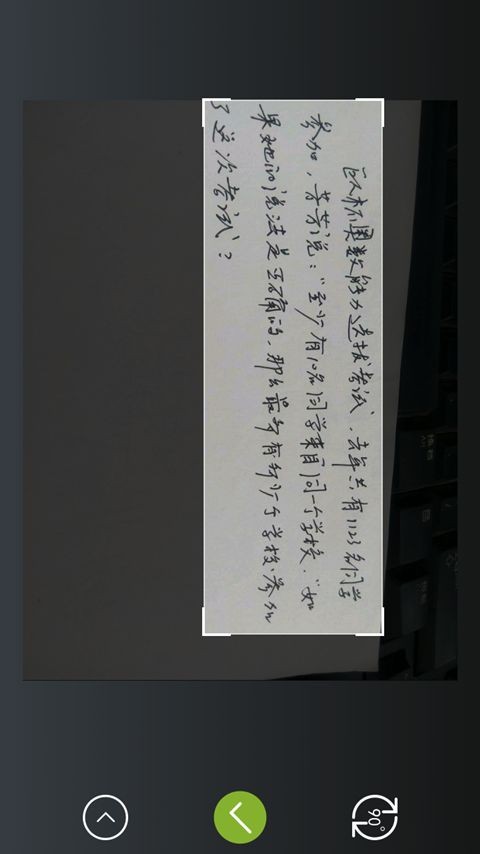 杯奥数能力选拔考试,去年共有1123名同学
参加,芳芳说:“至少有10名同学来自同一个学校.”如
果她的说法是正确的,那么最多有多少个学校参加
了这次考试?
90°